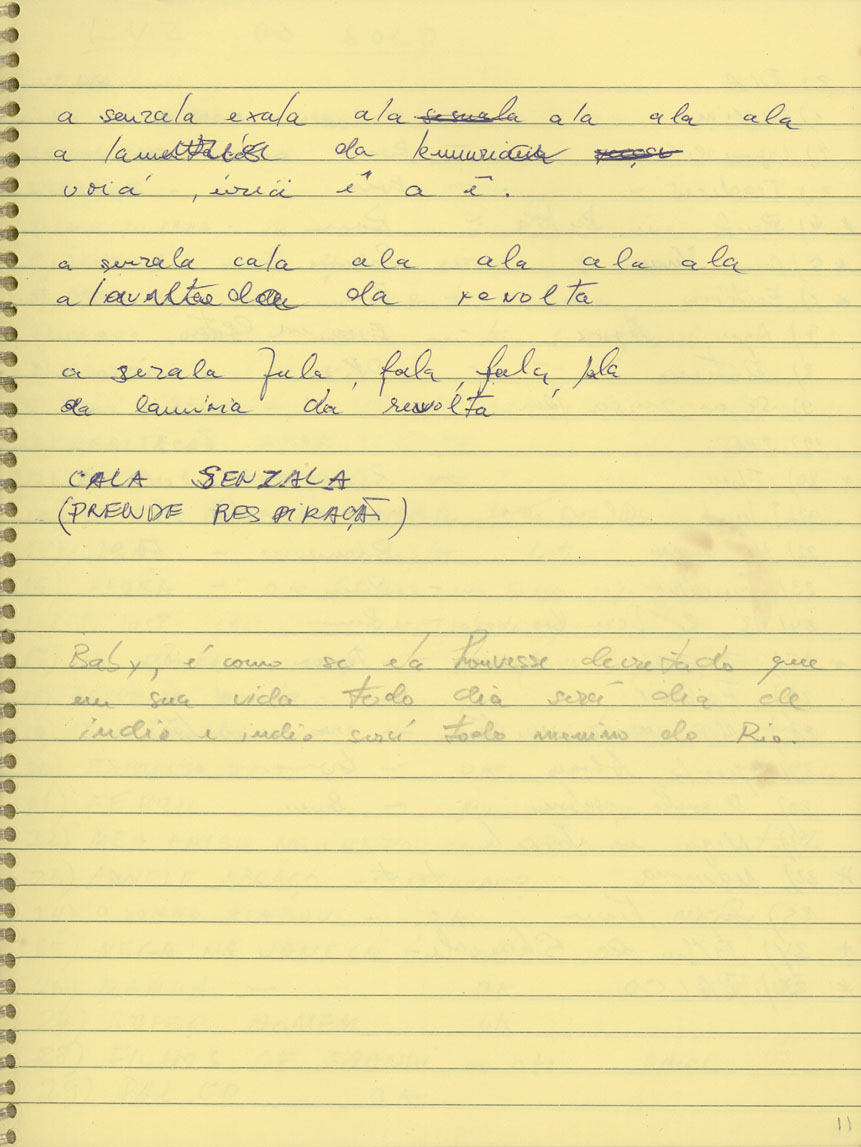 a senzala exala ala ala ala ala
a da
a senzala cala ala ala ala ala
a da revolta
a senzala fala, fala, fala, fala
da da revolta
CALA SENZALA
(PRENDE RESPIRAÇÃO)
Baby, é como se ela houvesse decretado que
em sua vida todo dia será dia de
índio e índio será todo menino do Rio.
11